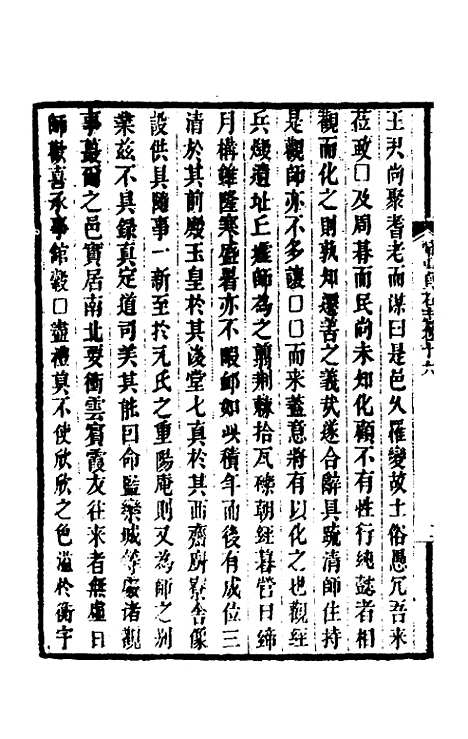 王尹尚聚耆老而謀曰是邑久罹變故土俗愚冗吾來
莅政□及周朞而民尚未知化顧不有性行純懿者相
觀而化之則孰知遷善之義哉遂合辭具疏清師住持
是觀師亦不多讓□□而來蓋意將有以化之也觀經
兵燬遺址丘墟師為之翦荆棘拾瓦礫朝經暮營日締
月構雖隆寒盛暑亦不暇卹如此積年而後有成位三
清於其前殿玉皇於其後堂七真於其西齋廚寮舍像
設供具隨事一新至於元氏之重陽庵則又為師之别
業茲不具録真定道司美其能回命監欒城等處諸觀
事蕞爾之邑實居南北要衝雲賓霞友往來者無虛日
師歡喜承事館穀□盡禮莫不使欣欣之色溢於衡宇